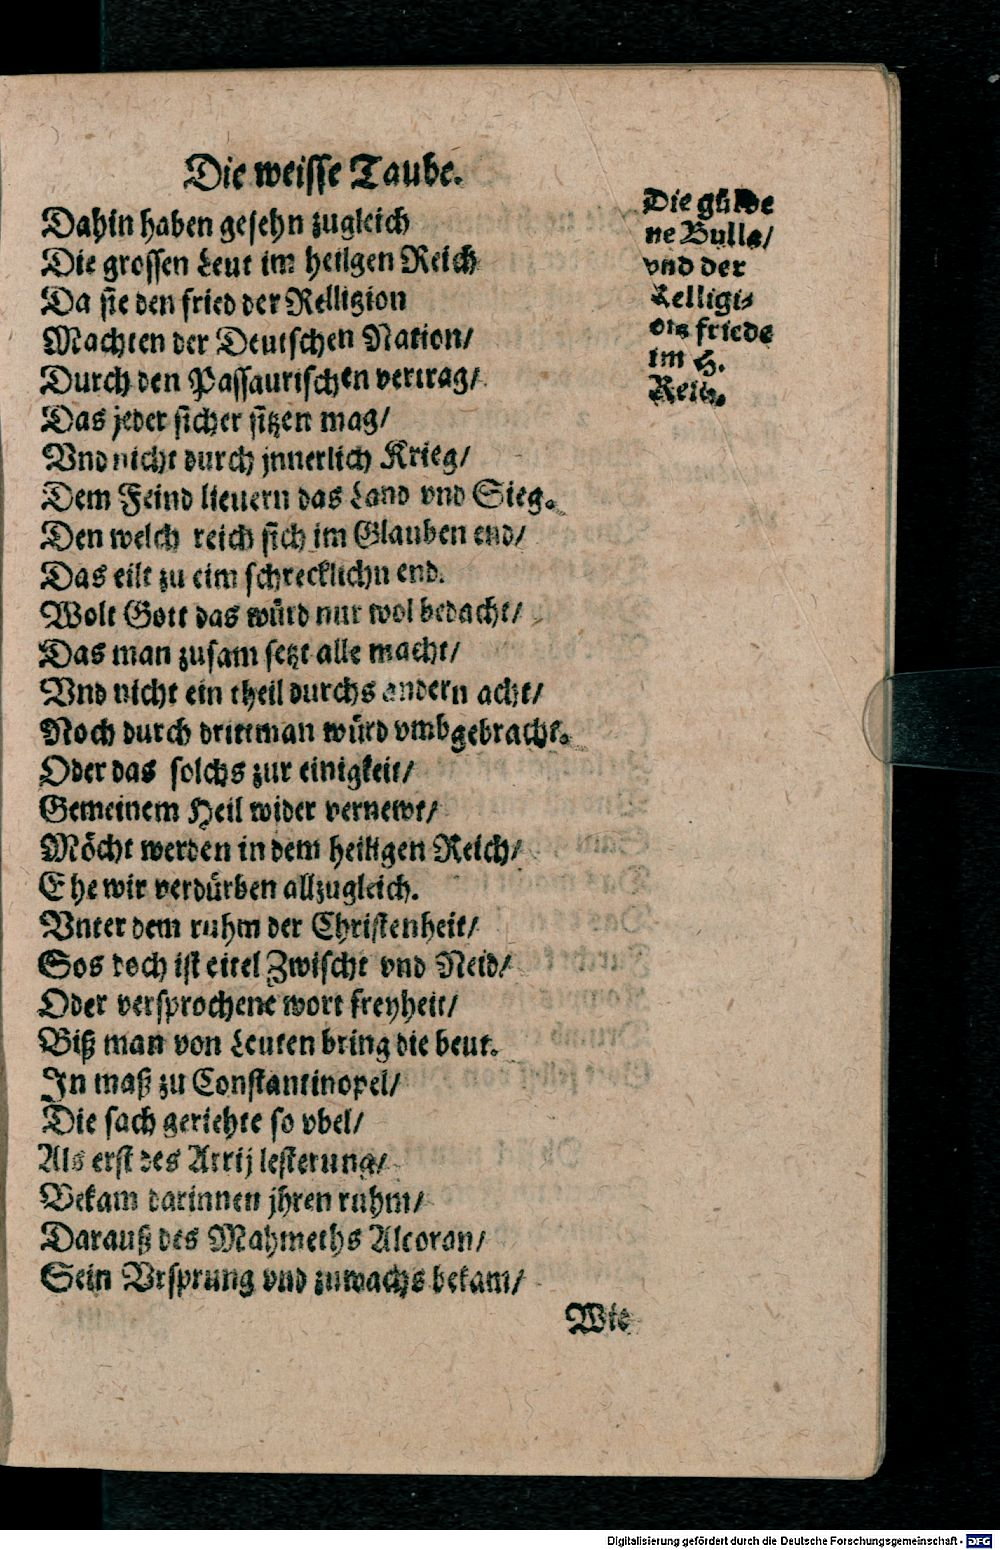 Die weisse Taube.
Dahin haben gesehn zugleich
Die grossen Leut im heilgen Reich
Da sie den fried der Relligion
Machten der Deutschen Nation/
Durch den Passaurischen vertrag/
Das jeder sicher sitzen mag/
Vnd nicht durch jnnerlich Krieg/
Dem Feind lieuern das Land vnd Sieg.
Den welch reich sich im Glauben end/
Das eilt zu eim schrecklichn end.
Wolt Gott das würd nur wol bedacht/
Das man zusam setzt alle macht/
Vnd nicht ein theil durchs andern acht/
Noch durch drittman würd vmbgebracht.
Oder das solchs zur einigkeit/
Gemeinem Heil wider vernewt/
Möcht werden in dem heiligen Reich/
Ehe wir verdürben allzugleich.
Vnter dem ruhm der Christenheit/
Sos doch ist eitel Zwischt vnd Neid/
Oder versprochene wort freyheit/
Biß man von Leuten bring die beut.
In maß zu Constantinopel/
Die sach geriehte so vbel/
Als erst des Arrij lesterung/
Bekam darinnen jhren ruhm/
Darauß des Mahmeths Alcoran/
Sein Vrsprung vnd zuwachs bekam/
Wie
Die gülde
ne Bulla/
vnd der
Relligi-
ons friede
im H.
Reich.
Digitalisierung gefördert durch die Deutsche Forschungsgemeinschaft - DFG